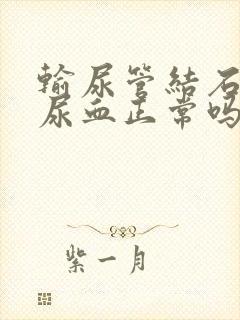 输尿管结石
尿血正常吗
紫一月